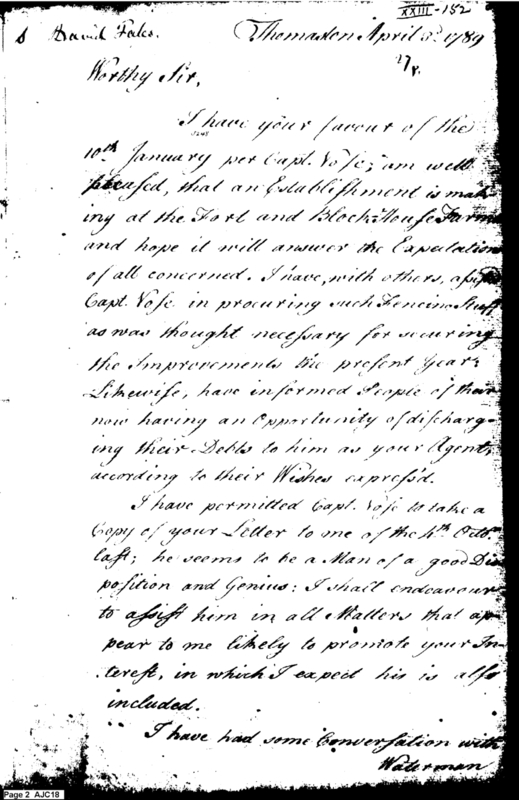 XXIII-152
David Fales. Thomaston April 3d. 1789
Worthy Sir,
I have your favour of the
10th January per Capt. Vose; am well
pleased, that an Establishment is mak-
ing at the Fort and Block-House Farms
and hope it will answer the Expectations
of all concerned. I have, with others, assisted
Capt. Vose in procuring such Fencing Stuff
as was thought necessary for securing
the Improvements the present Year;
Likewise, have informed People of their
now having an Opportunity of discharg-
ing their Debts to him as your Agent,
according to their Wishes express'd.
I have permitted Capt. Vose to take a
Copy of your Letter to me of the 4th. Octb.
last; he seems to be a Man of a good Dis-
position and Genius: I shall endeavour
to assist him in all Matters that ap-
pear to me likely to promote your In-
terest, in which I expect his is also
included.
I have had some Conversation with
Waterman
Page 2 AJC18